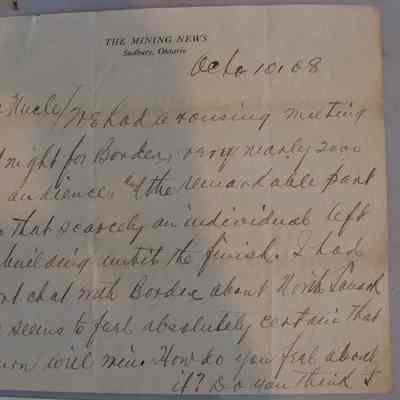 THE MINING NEWS
Sudbury, Ontario
Octo 10, 08
Uncle/ We had a rousing meeting
night for Borden, very nearly 2000
audience, & the remarkable part
that scarcely an individual left
building until the finish. I had
chat with Borden about North
seems to feel absolutely certain that
will win. How do you feel about
it? Do you think I